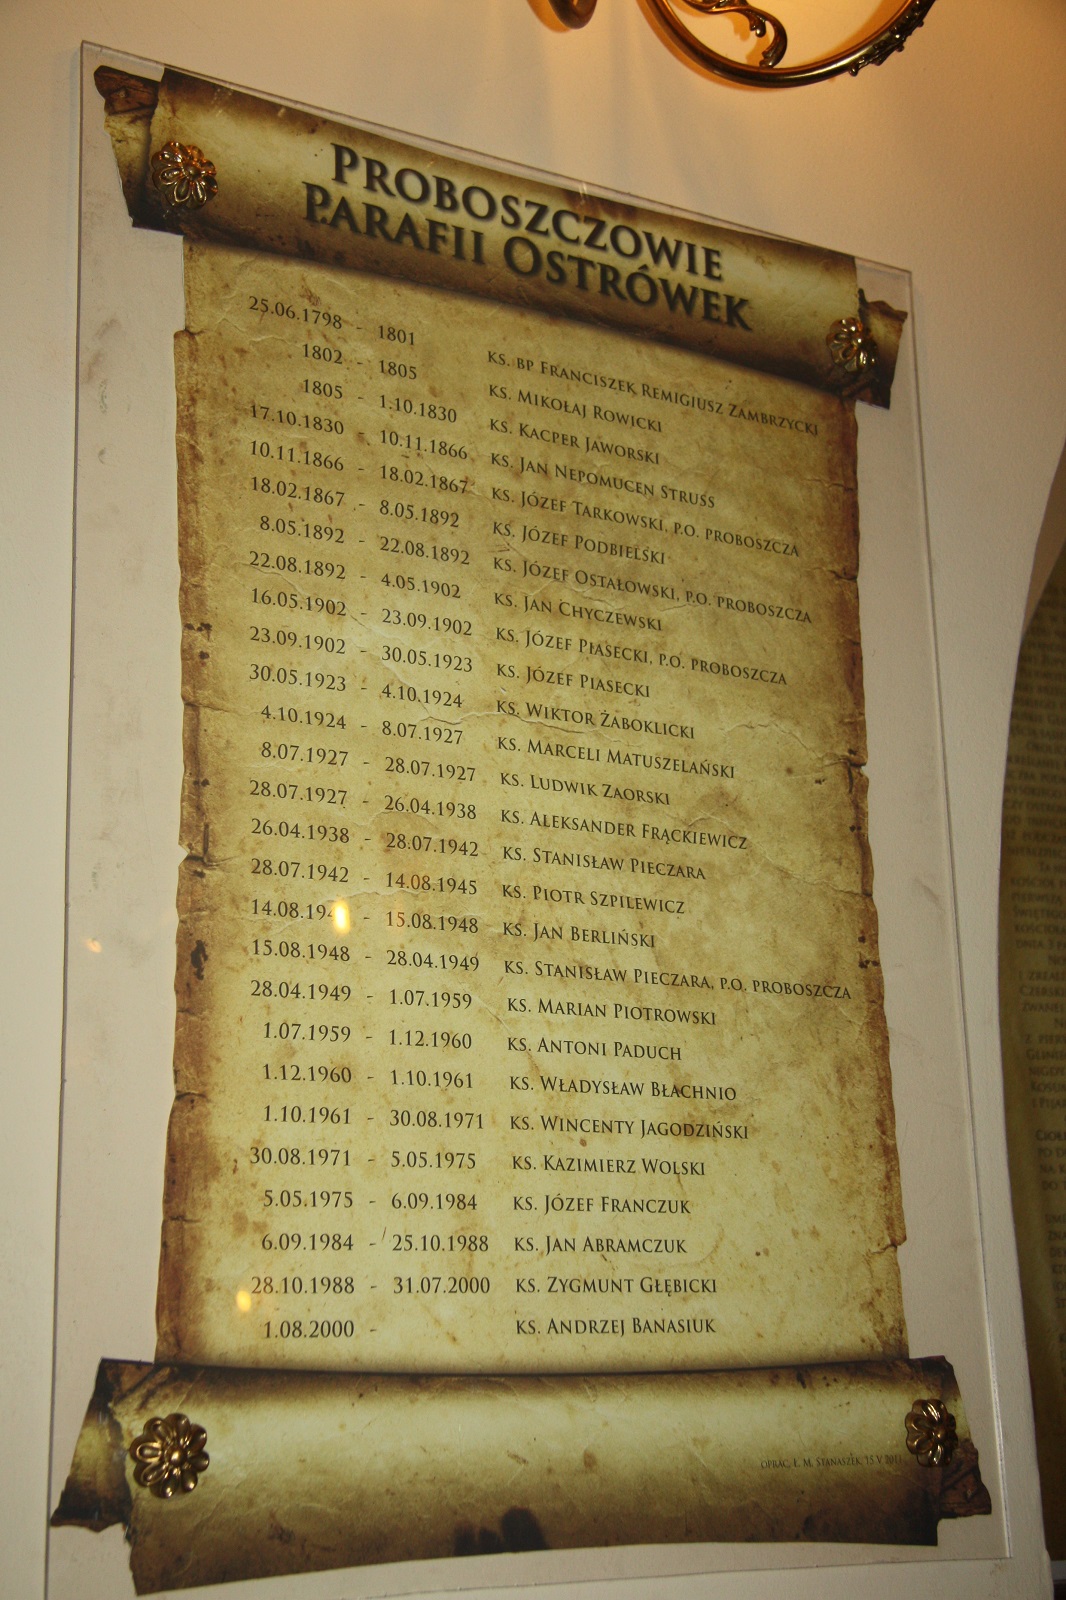 PROBOSZCZOWIE
PARAFII OSTRÓWEK
25.06.1798 - 1801 KS. BP FRANCISZEK REMIGIUSZ ZAMBRZYCKI
1802 - 1805 KS. MIKOŁAJ ROWICKI
1805 - 1.10.1830 KS. KACPER JAWORSKI
17.10.1830 - 10.11.1866 KS. JAN NEPOMUCEN STRUSS
10.11.1866 - 18.02.1867 KS. JÓZEF TARKOWSKI, P.O. PROBOSZCZA
18.02.1867 - 8.05.1892 KS. JÓZEF PODBIELSKI
8.05.1892 - 22.08.1892 KS. JÓZEF OSTAŁOWSKI, P.O. PROBOSZCZA
22.08.1892 - 4.05.1902 KS. JAN CHYCZEWSKI
16.05.1902 - 23.09.1902 KS. JÓZEF PIASECKI, P.O. PROBOSZCZA
23.09.1902 - 30.05.1923 KS. JÓZEF PIASECKI
30.05.1923 - 4.10.1924 KS. WIKTOR ŻABOKLICKI
4.10.1924 - 8.07.1927 KS. MARCELI MATUSZELAŃSKI
8.07.1927 - 28.07.1927 KS. LUDWIK ZAORSKI
28.07.1927 - 26.04.1938 KS. ALEKSANDER FRĄCKIEWICZ
26.04.1938 - 28.07.1942 KS. STANISŁAW PIECZARA
28.07.1942 - 14.08.1945 KS. PIOTR SZPILEWICZ
14.08.194 - 15.08.1948 KS. JAN BERLIŃSKI
15.08.1948 - 28.04.1949 KS. STANISŁAW PIECZARA, P.O. PROBOSZCZA
28.04.1949 - 1.07.1959 KS. MARIAN PIOTROWSKI
1.07.1959 - 1.12.1960 KS. ANTONI PADUCH
1.12.1960 - 1.10.1961 KS. WŁADYSŁAW BŁACHNIO
1.10.1961 - 30.08.1971 KS. WINCENTY JAGODZIŃSKI
30.08.1971 - 5.05.1975 KS. KAZIMIERZ WOLSKI
5.05.1975 - 6.09.1984 KS. JÓZEF FRANCZUK
6.09.1984 - 25.10.1988 KS. JAN ABRAMCZUK
28.10.1988 - 31.07.2000 KS. ZYGMUNT GŁĘBICKI
1.08.2000 - KS. ANDRZEJ BANASIUK
OPRAC. Ł. M. STANASZEK, 15 V 2011